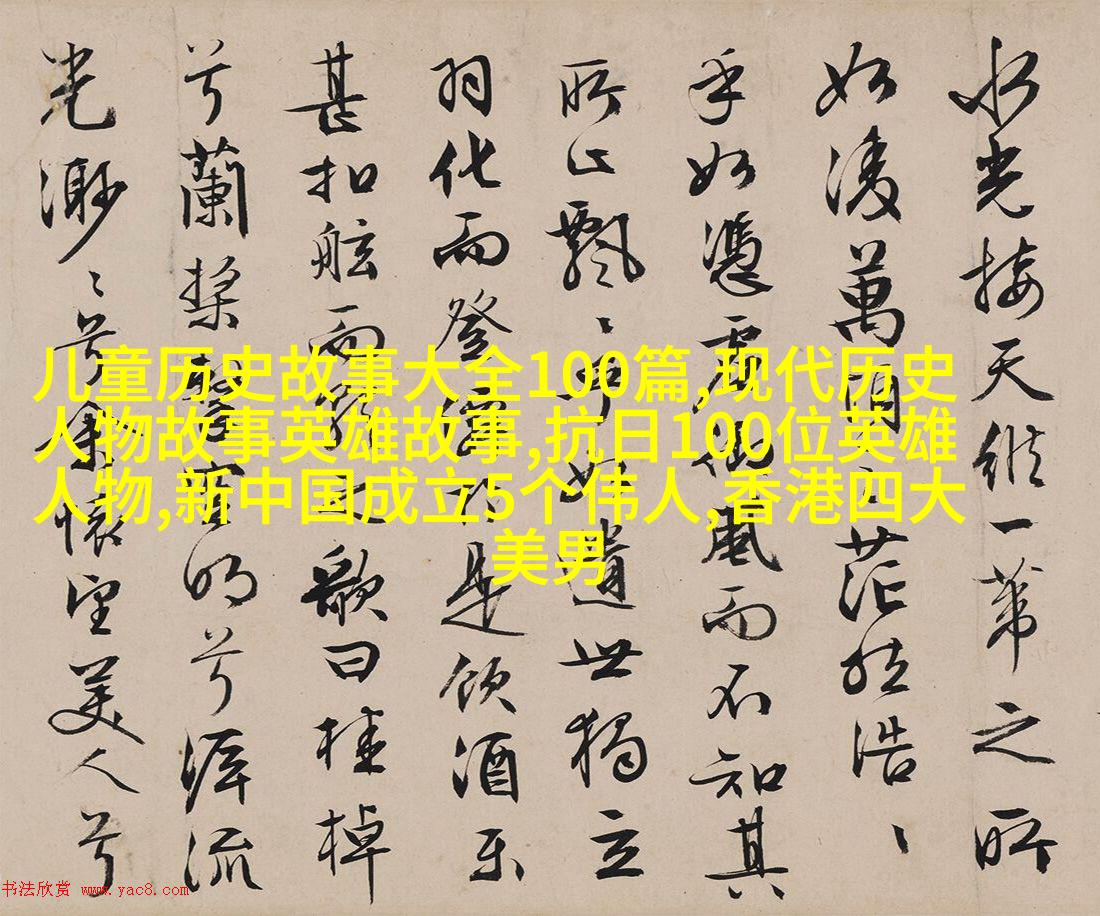 水光接天縱一葦之所
如凌萬頃之茫然浩〻
乎如憑虛御風而不知其
所止飄〻乎如遺世獨立
羽化而登僊於是飲酒樂
甚扣舷而歌之歌曰桂棹
兮蘭槳擊空明兮泝流
光渺〻兮余懷望美人兮
儿童历史故事大全100篇,现代历史
人物故事英雄故事,抗日100位英雄
人物,新中国成立5个伟人,香港四大
美男
书法欣赏 www.yac8.com